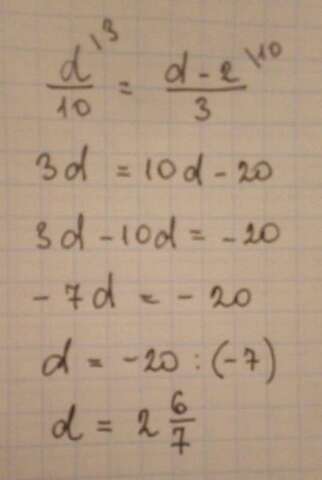 d\3/10 = d-2\10/3
3d = 10d - 20
3d - 10d = -20
- 7d = - 20
d = -20 : (-7)
d = 2 6/7